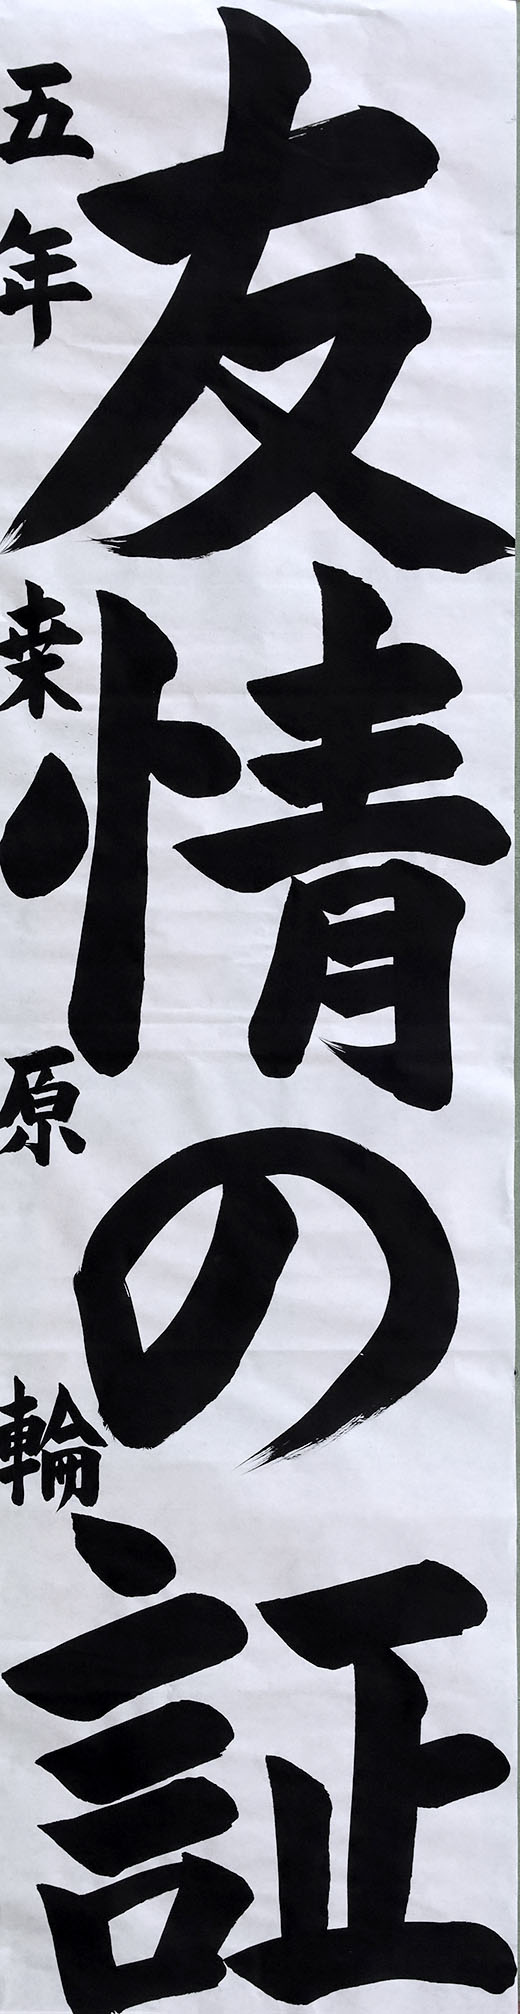 友情の証
五年 桒原 輪